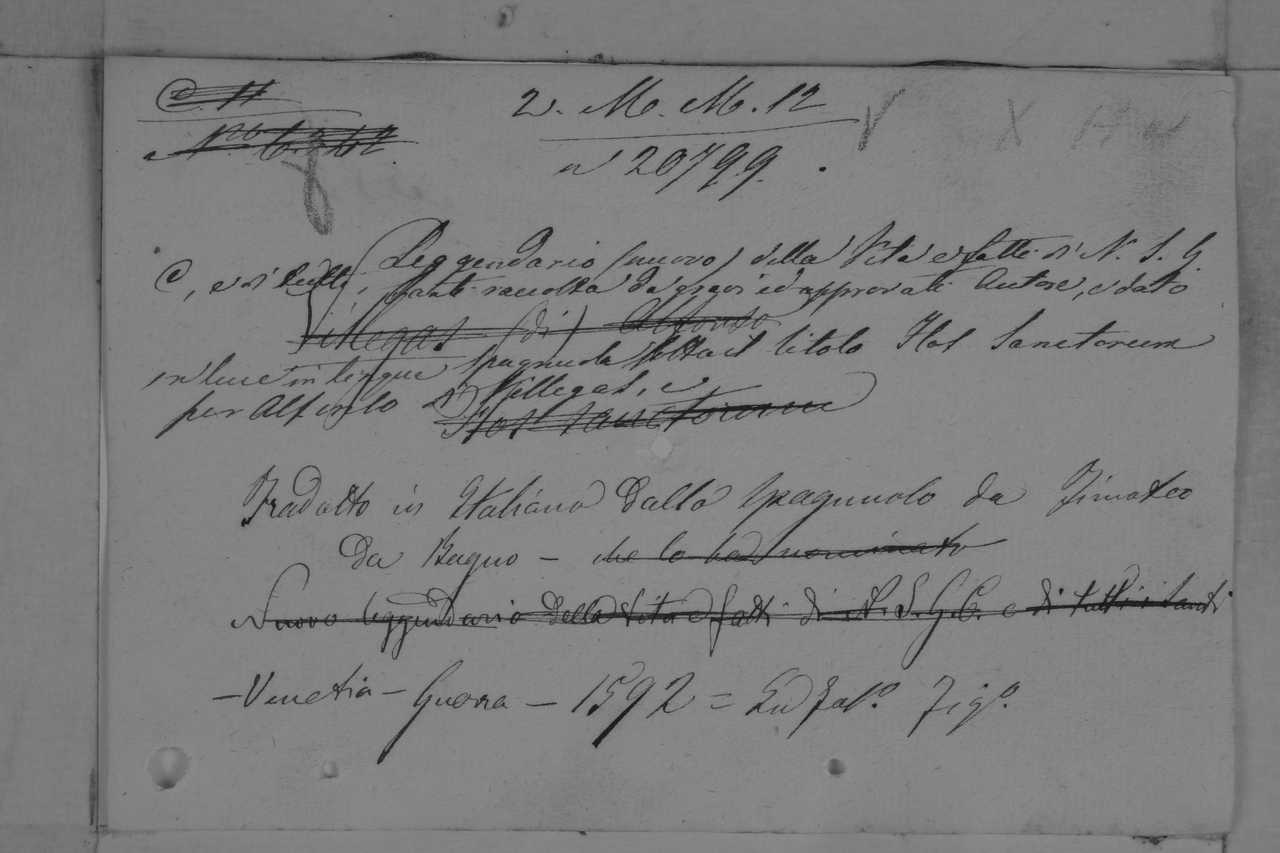 C. 11
2. M. M. 12
N.º 6362
n 20799.
Leggendario (nuovo) della Vita e fatti di N. S. G.
C, e di tutti i Santi raccolta da gravi ed approvati Autori, e dato
Villegas (di) Alfonso
in luce in lingua spagnuola sotto il titolo Flos Sanctorum
per Alfonso di Villegas, e
Flos Sanctorum
Tradotto in Italiano dallo Spagnuolo da Timoteo
da Bagno - che lo ha nominato
Nuovo leggendario della Vita e fatti di N. S. G. C. e di tutti i Santi
- Venetia - Guerra - 1592 = In fol.º Fig.º